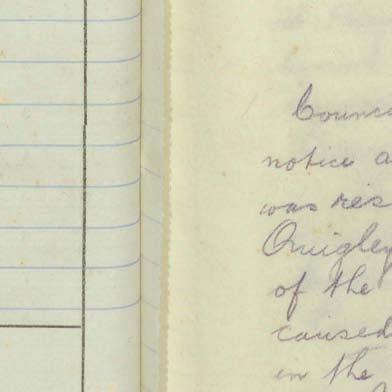 Counc
notice a
was res
Quigley
of the
caused
in the